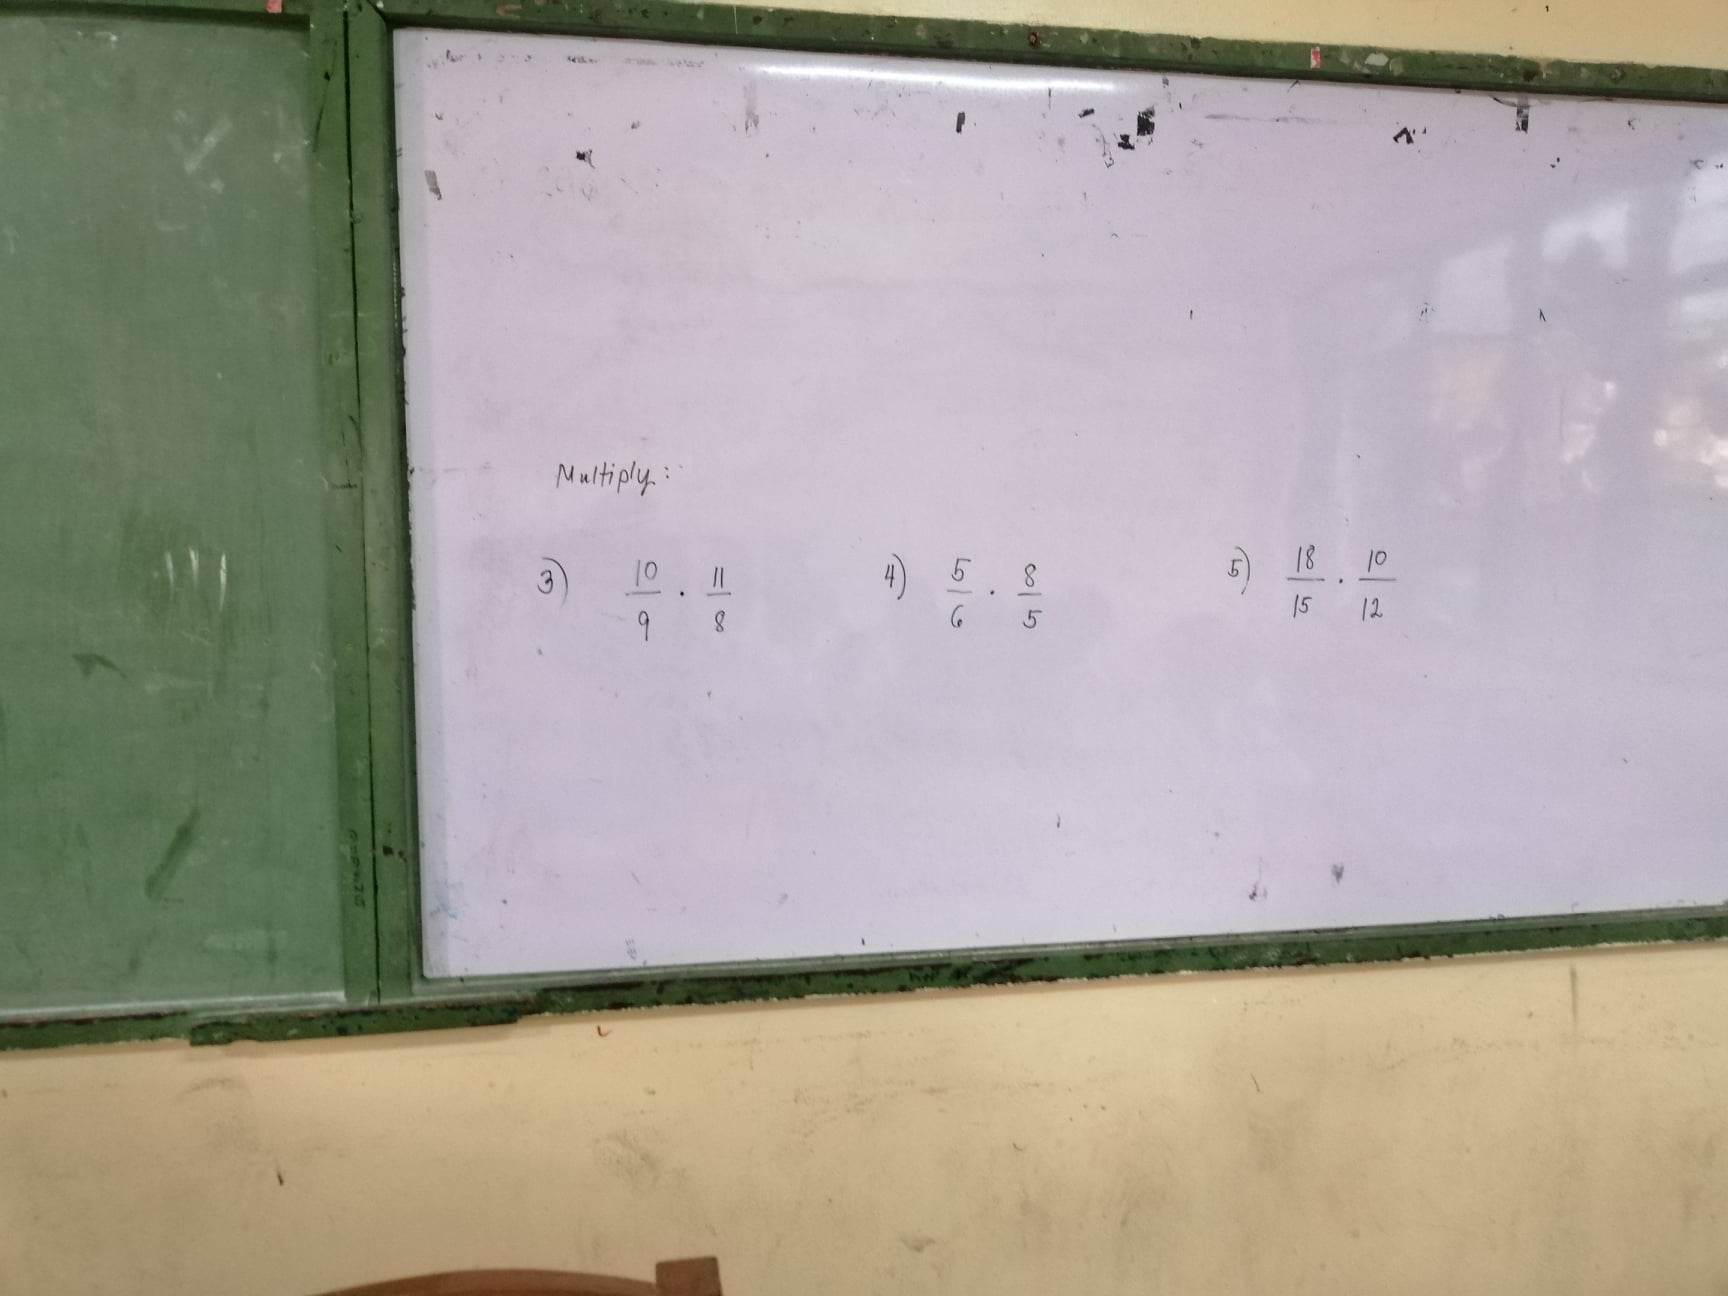 Multiply:
3) 10/9 · 11/8 4) 5/6 · 8/5 5) 18/15 · 10/12